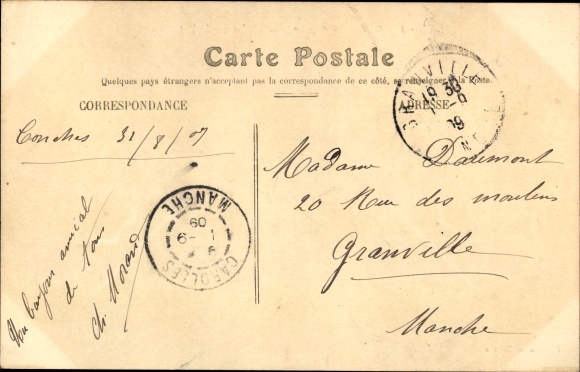 Carte Postale
Quelques pays étrangers n'acceptant pas la correspondance de ce côté, se renseigner à la Poste.
CORRESPONDANCE
ADRESSE
31/8/09
Un bonjour amical
de nous
Ch. Morand
CAROLLES
MANCHE
1 - 9
09
GRANVILLE
18 30
1 - 9
09
Madame Daremont
20 Rue des moulins
Granville
Manche